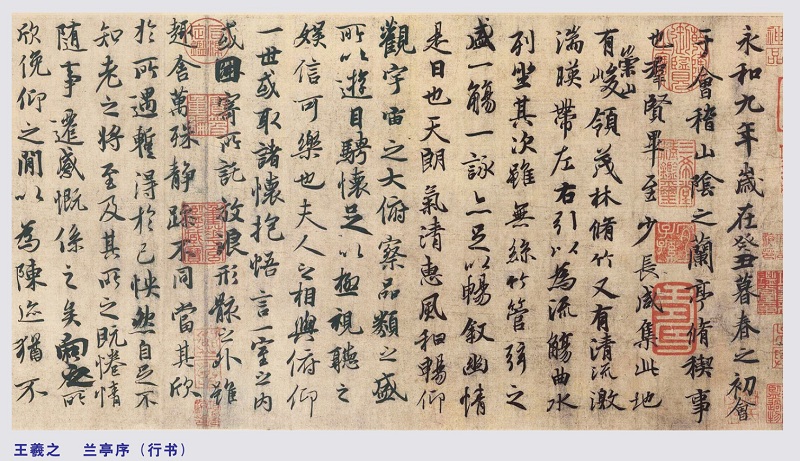 永和九年歲在癸丑暮春之初會
于會稽山陰之蘭亭脩稧事
也羣賢畢至少長咸集此地
有崇山峻領茂林脩竹又有清流激
湍暎帶左右引以為流觴曲水
列坐其次雖無絲竹管弦之
盛一觴一詠亦足以暢叙幽情
是日也天朗氣清惠風和暢仰
觀宇宙之大俯察品類之盛
所以遊目騁懷足以極視聽之
娛信可樂也夫人之相與俯仰
一世或取諸懷抱悟言一室之內
或因寄所託放浪形骸之外雖
趣舍萬殊静躁不同當其欣
於所遇暫得於己怏然自足不
知老之將至及其所之既惓情
隨事遷感慨係之矣向之所
欣俛仰之閒以為陳迹猶不
王羲之 兰亭序（行书）